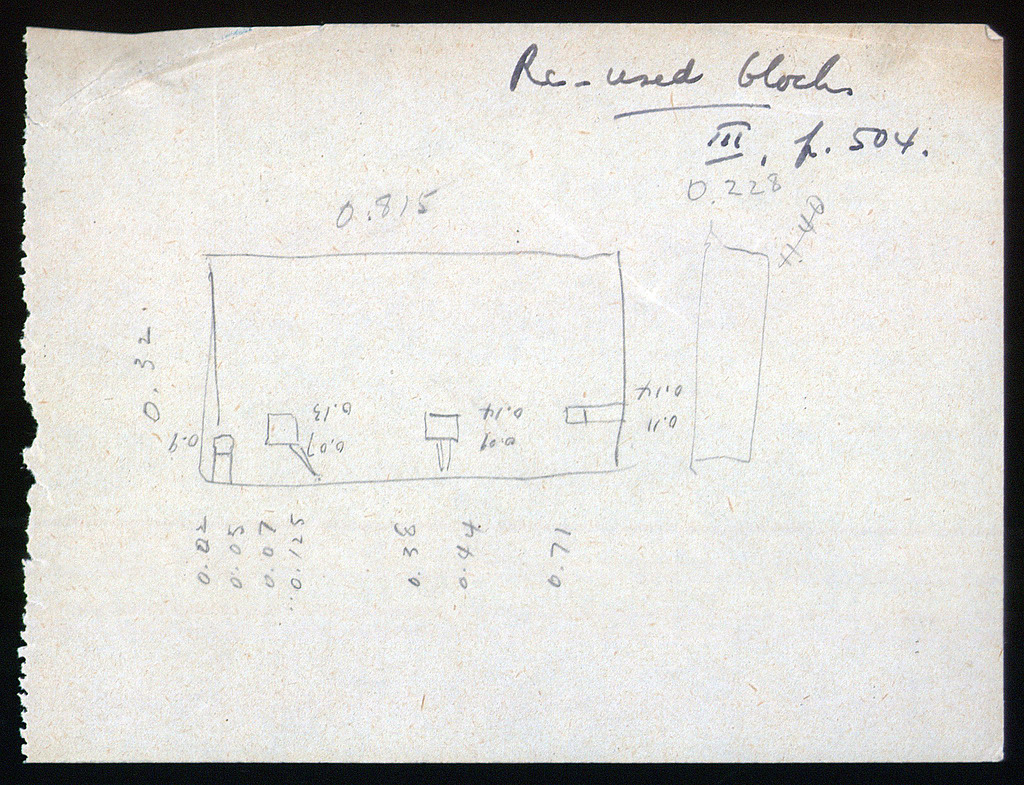 Re-used blocks
III, p. 504.
0.228
0.815
H. 40
0.32
0.14
0.11
0.13
0.07
0.14
0.09
0.9
0.02
0.05
0.07
0.125
0.38
0.44
0.71